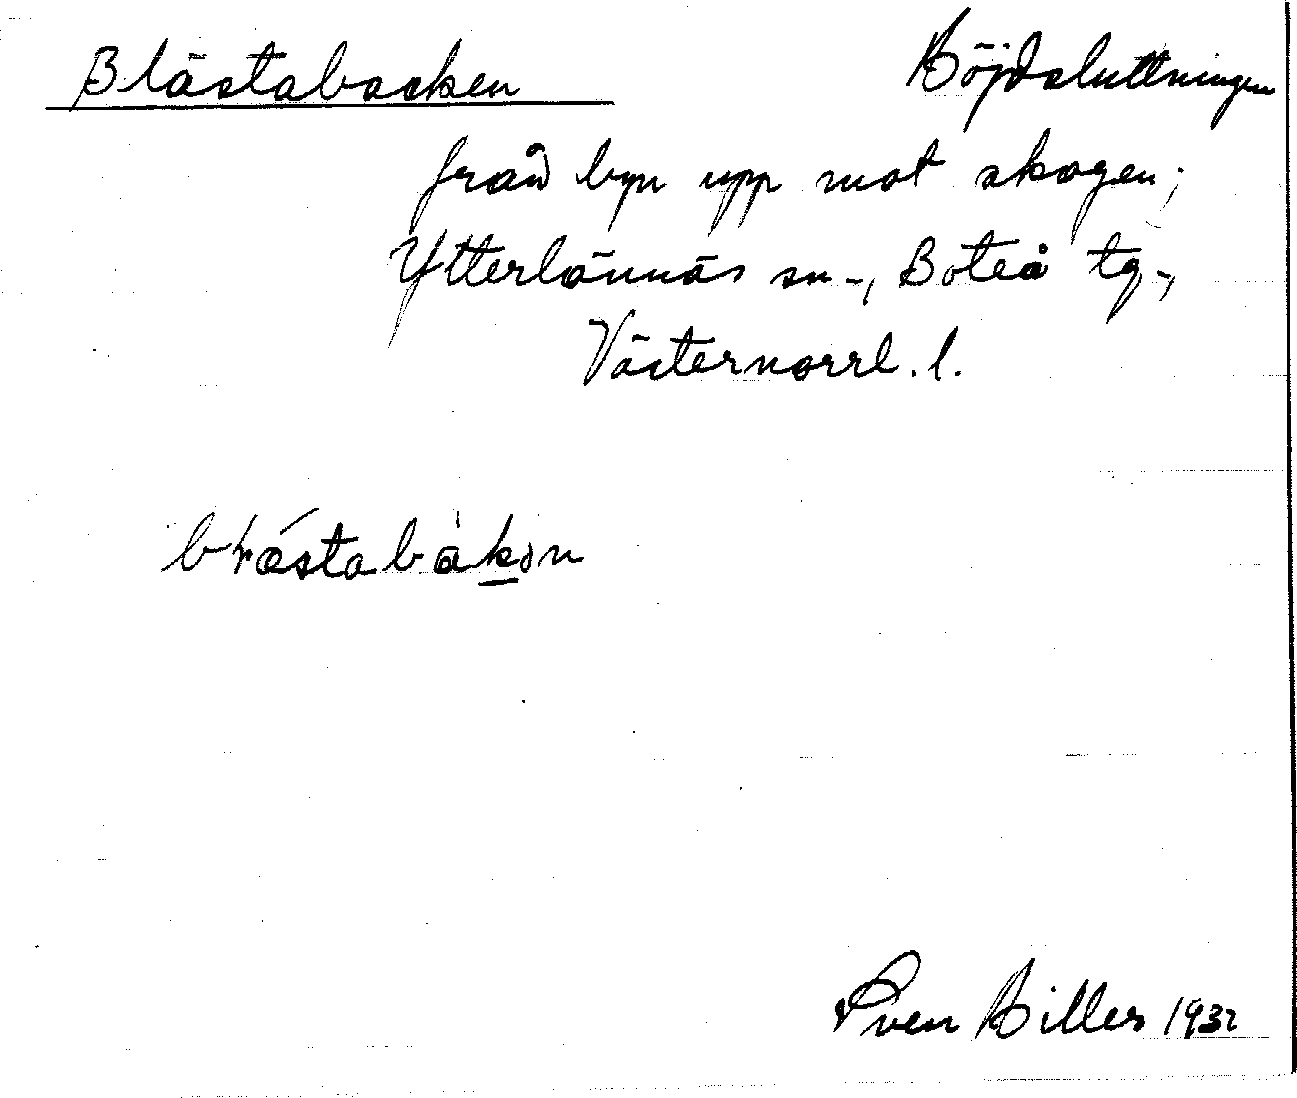 Blästabacken Höjdsluttningen
från byn upp mot skogen;
Ytterlännäs sn., Boteå tg.,
Västernorrl. l.
Sven Hiller 1932